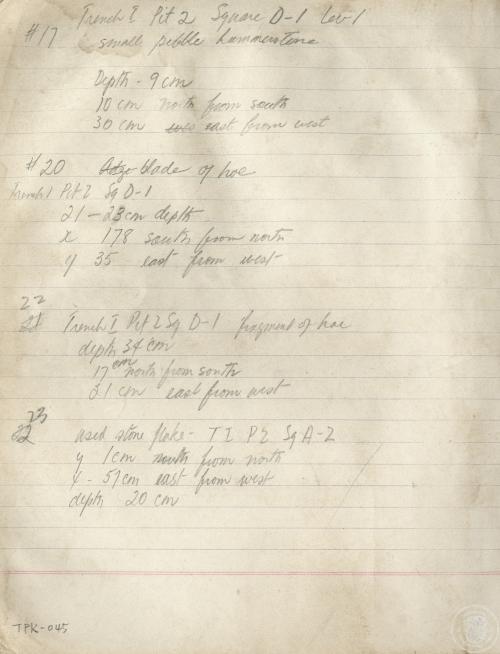 Trench I Pit 2 Square D-1 Lev-1
#17 small pebble hammerstone
Depth - 9 cm
10 cm north from south
30 cm east from west
#20 Adze blade of hoe
Trench I Pit 2 Sq D-1
21 - 23 cm depth
x 178 south from north
y 35 east from west
22
21 Trench I Pit 2 Sq D-1 fragment of hoe
depth 34 cm
17 cm north from south
21 cm east from west
23
22 used stone flake - T I P 2 Sq A-2
y 1cm south from north
x - 57cm east from west
depth 20 cm
TPK-045